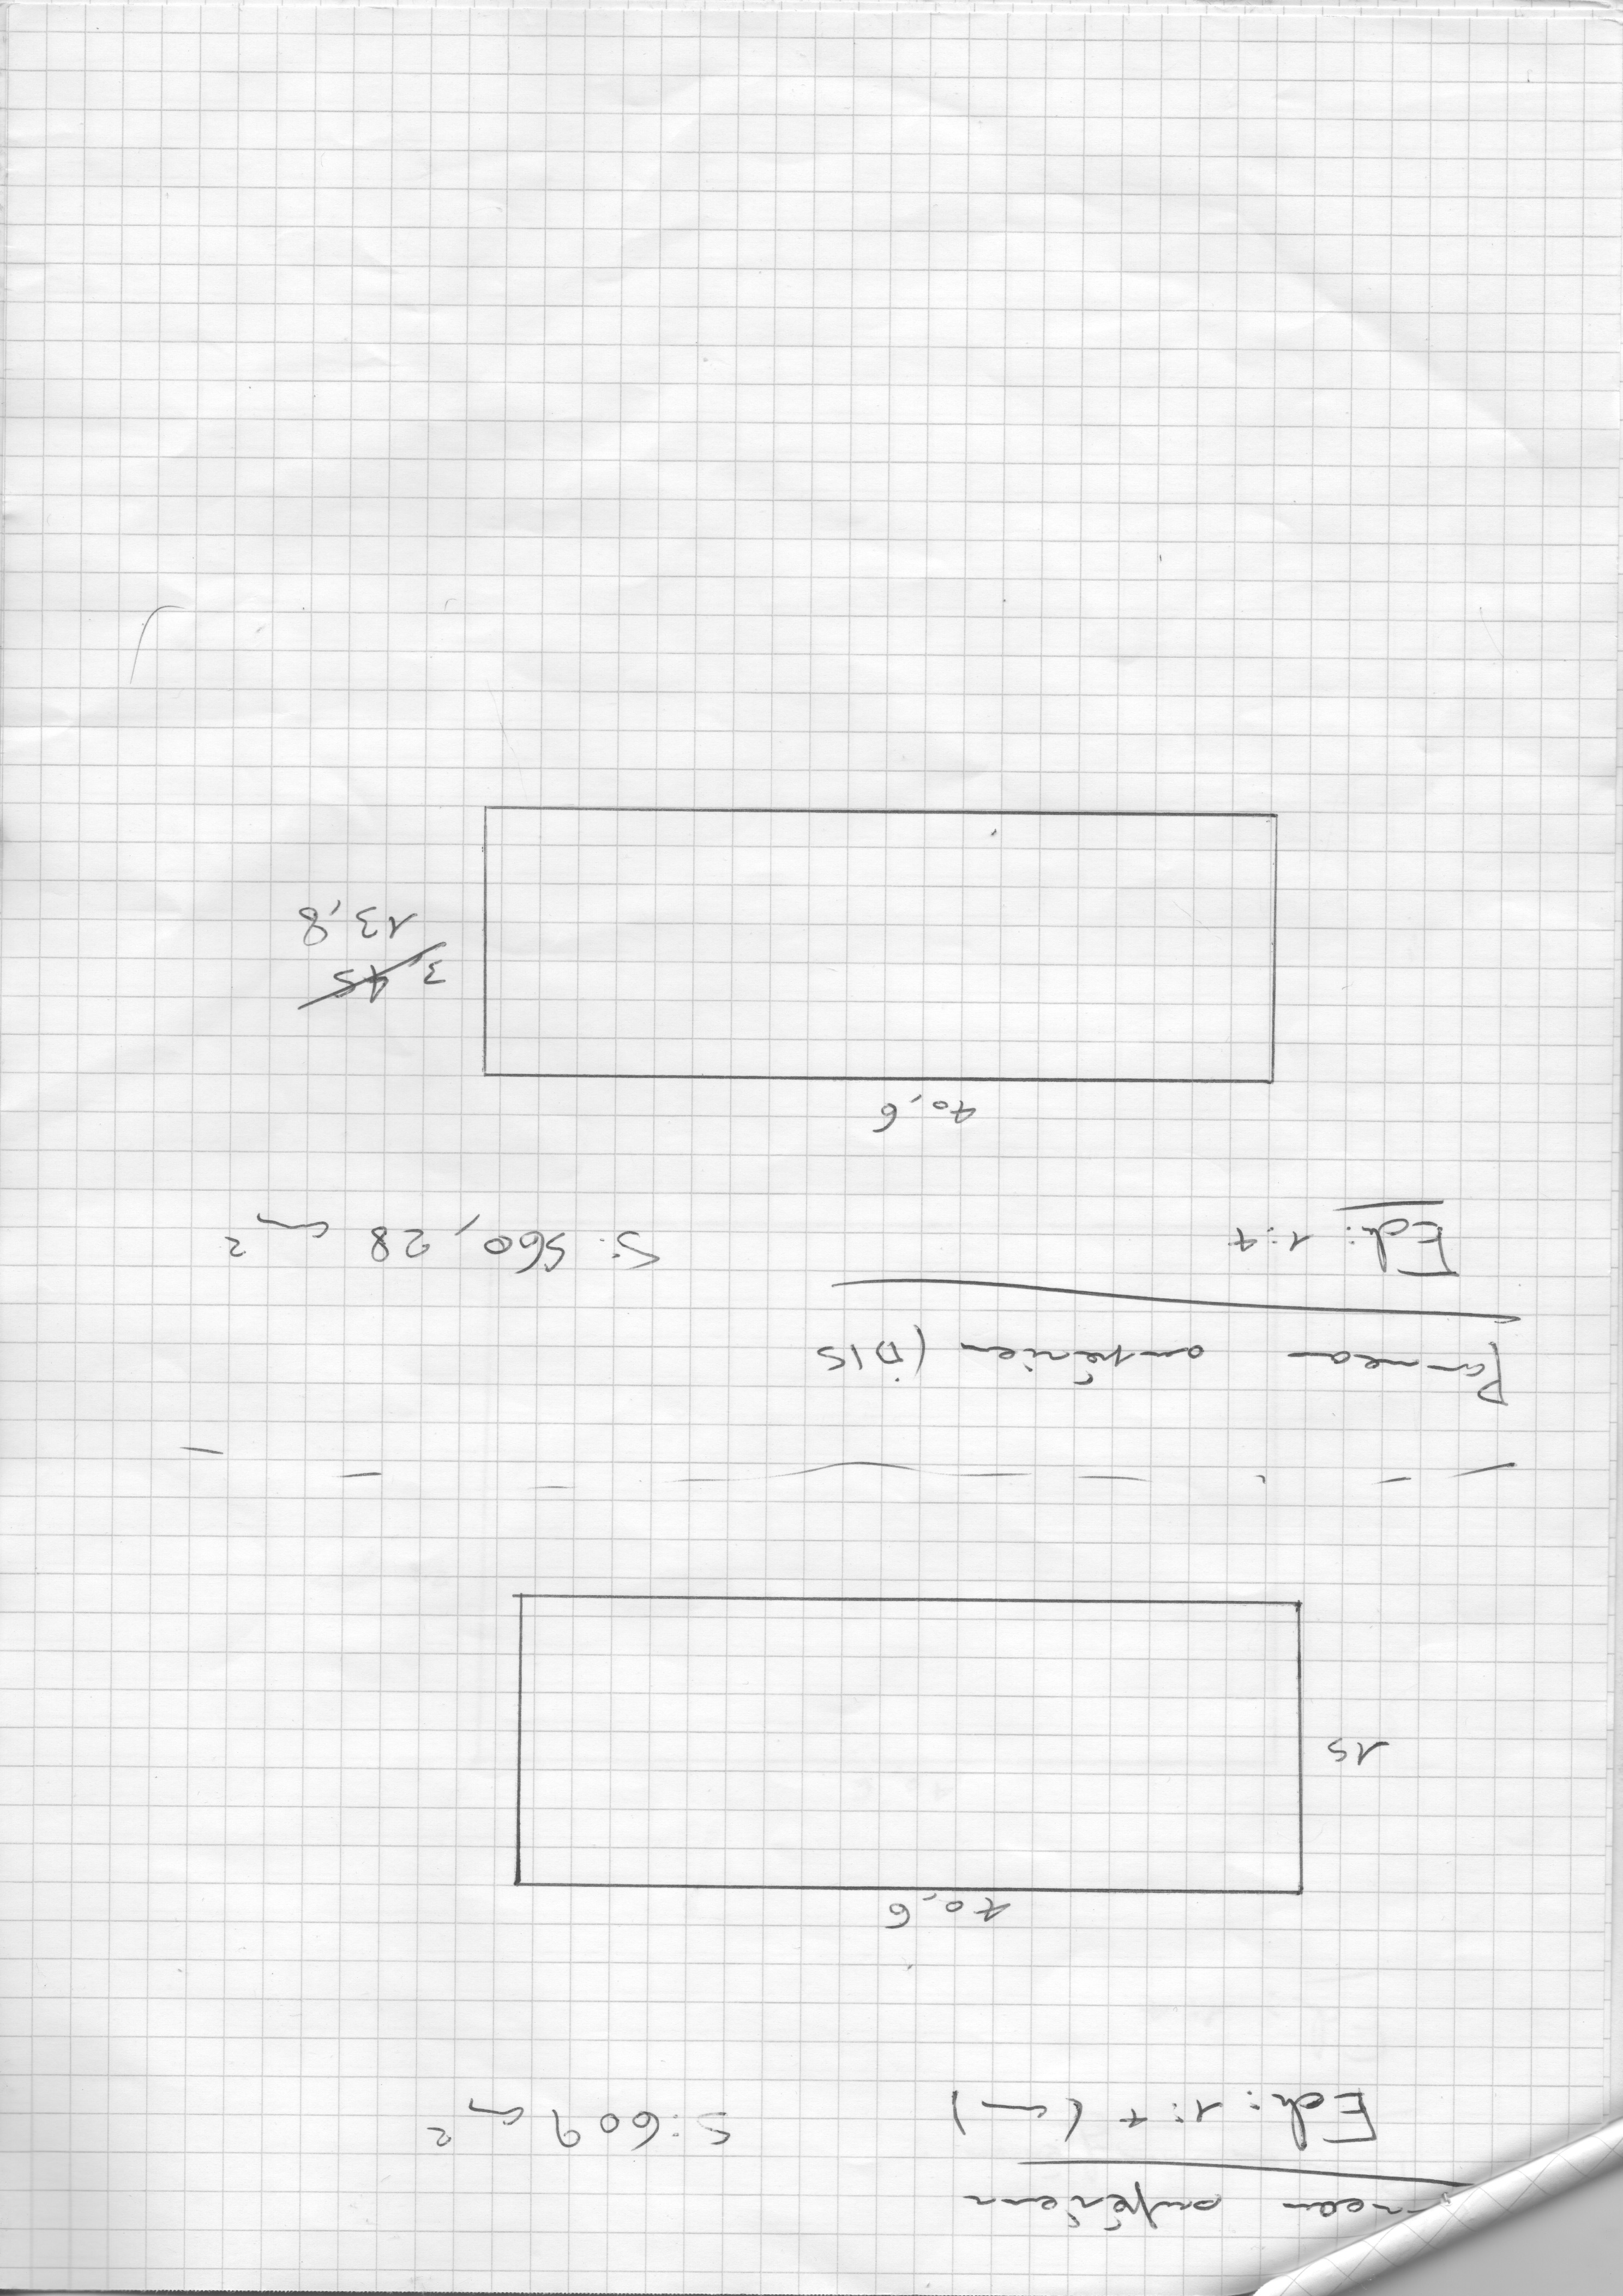 supérieur
Ech: 1:4 (cm)
S: 609 cm²
40,6
15
Panneau supérieur (DIS
Ech: 1:4
S: 560,28 cm²
40,6
3,45
13,8